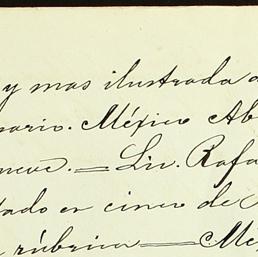 y mas ilustrada a
sario. México Ab
nueve. = Lic. Rafa
tado en cinco de
rúbrica — Mé